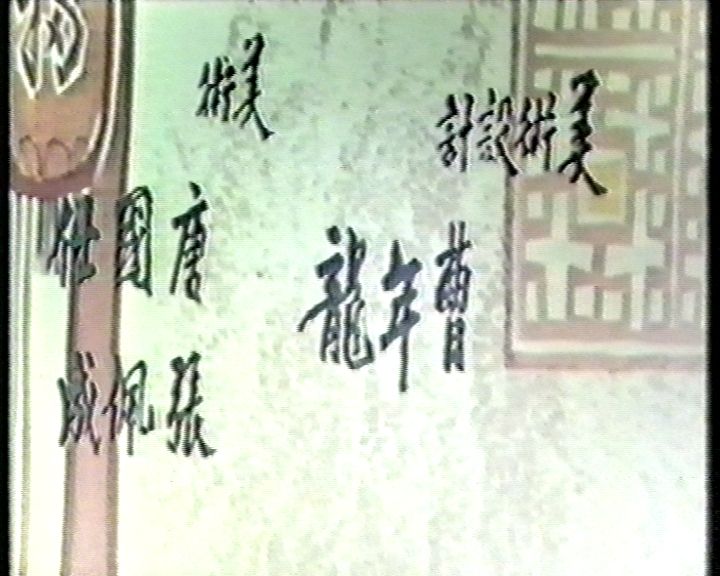 美術設計
曹年龍
美術
唐國仕
張佩成